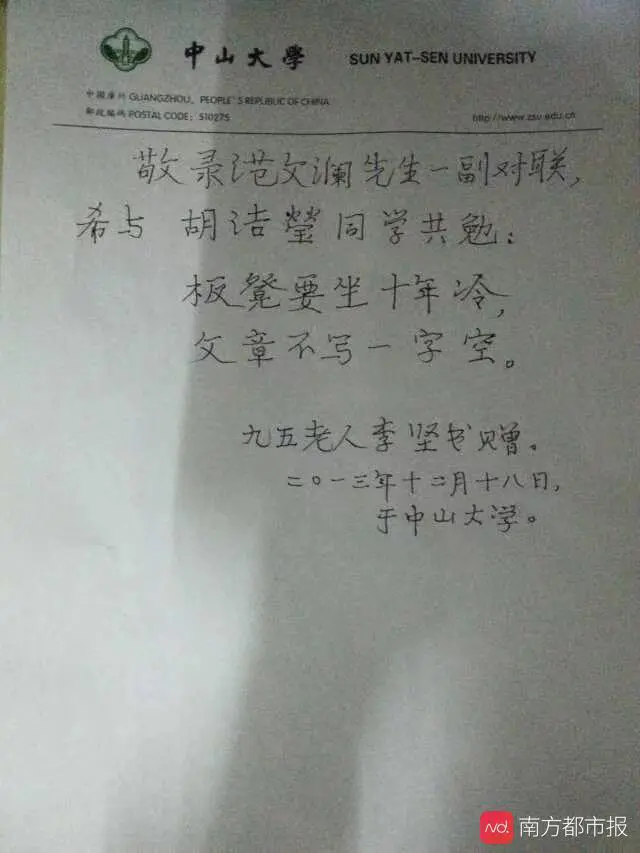 中山大學 SUN YAT-SEN UNIVERSITY
中國廣州 GUANGZHOU, PEOPLE'S REPLIBLIC OF CHINA
郵政編碼 POSTAL CODE: 510275 http://www.zsu.edu.cn
敬录范文澜先生一副对联,
希与 胡洁瑩同学共勉:
板凳要坐十年冷,
文章不写一字空。
九五老人李坚书赠。
二〇一三年十二月十八日,
于中山大学。
Nd. 南方都市报